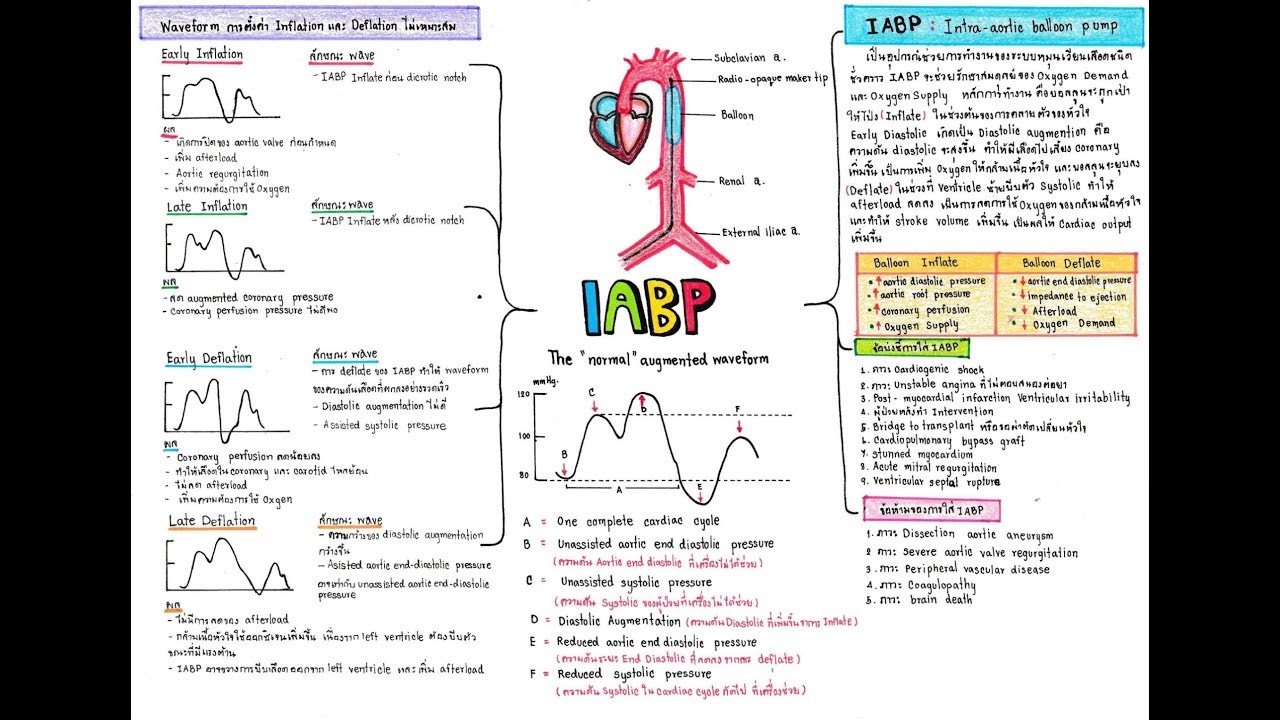 Waveform การตั้งค่า Inflation และ Deflation ไม่เหมาะสม
Early Inflation
ลักษณะ wave
- IABP Inflate ก่อน dicrotic notch
ผล
- เกิดการปิดของ aortic valve ก่อนกำหนด
- เพิ่ม afterload
- Aortic regurgitation
- เพิ่มความต้องการใช้ Oxygen
Late Inflation
ลักษณะ wave
- IABP Inflate หลัง dicrotic notch
ผล
- ลด augmented coronary pressure
- Coronary perfusion pressure ไม่ดีพอ
Early Deflation
ลักษณะ wave
- การ deflate ของ IABP ทำให้ waveform
ของความดันเลือดที่ตกลงอย่างรวดเร็ว
- Diastolic augmentation ไม่ดี
- Assisted systolic pressure
ผล
- Coronary perfusion ลดน้อยลง
- ทำให้เลือดใน coronary และ carotid ไหลย้อน
- ไม่ลด afterload
- เพิ่มความต้องการใช้ Oxgen
Late Deflation
ลักษณะ wave
- ความกว้างของ diastolic augmentation
กว้างขึ้น
- Asisted aortic end-diastolic pressure
อาจเท่ากับ unassisted aortic end-diastolic
pressure
ผล
- ไม่มีการลดลงของ afterload
- กล้ามเนื้อหัวใจใช้ออกซิเจนเพิ่มขึ้น เนื่องจาก left ventricle ต้องบีบตัว
ขณะที่มีแรงต้าน
- IABP อาจขวางการบีบเลือดออกจาก left ventricle และ เพิ่ม afterload
Subclavian a.
Radio-opaque maker tip
Balloon
Renal a.
External iliac a.
IABP
The "normal" augmented waveform
mmHg.
120
100
80
A
B
C
D
E
F
A = One complete cardiac cycle
B = Unassisted aortic end diastolic pressure
(ความดัน Aortic end diastolic ที่เครื่องไม่ได้ช่วย)
C = Unassisted systolic pressure
(ความดัน Systolic ของผู้ป่วยที่เครื่องไม่ได้ช่วย)
D = Diastolic Augmentation (ความดัน Diastolic ที่เพิ่มขึ้นจากการ Inflate)
E = Reduced aortic end diastolic pressure
(ความดันระยะ End Diastolic ที่ลดลงจากการ deflate)
F = Reduced systolic pressure
(ความดัน Systolic ใน cardiac cycle ถัดไป ที่เครื่องช่วย)
IABP : Intra-aortic balloon pump
เป็นอุปกรณ์ช่วยการทำงานของระบบหมุนเวียนเลือดชนิด
ชั่วคราว IABP จะช่วยรักษาสมดุลย์ของ Oxygen Demand
และ Oxygen Supply หลักการทำงาน คือบอลลูนจะถูกเป่า
ให้โป่ง (Inflate) ในช่วงต้นของการคลายตัวของหัวใจ
Early Diastolic เกิดเป็น Diastolic augmention คือ
ความดัน diastolic จะสูงขึ้น ทำให้มีเลือดไปเลี้ยง coronary
เพิ่มขึ้น เป็นการเพิ่ม Oxygen ให้กล้ามเนื้อหัวใจ และบอลลูนจะยุบลง
(Deflate) ในช่วงที่ Ventricle ซ้ายบีบตัว Systolic ทำให้
afterload ลดลง เป็นการลดการใช้ Oxygen ของกล้ามเนื้อหัวใจ
และทำให้ stroke volume เพิ่มขึ้น เป็นผลให้ Cardiac output
เพิ่มขึ้น
Balloon Inflate
Balloon Deflate
• ↑ aortic diastolic pressure
• ↑ aortic root pressure
• ↑ coronary perfusion
• ↑ Oxygen Supply
• ↓ aortic end diastolic pressure
• ↓ impedance to ejection
• ↓ Afterload
• ↓ Oxygen Demand
ข้อบ่งชี้การใส่ IABP
1. ภาวะ Cardiogenic shock
2. ภาวะ Unstable angina ที่ไม่ตอบสนองต่อยา
3. Post - myocardial infarction Ventricular irritability
4. ผู้ป่วยหลังทำ Intervention
5. Bridge to transplant หรือรอผ่าตัดเปลี่ยนหัวใจ
6. Cardiopulmonary bypass graft
7. stunned myocardium
8. Acute mitral regurgitation
9. Ventricular septal rupture
ข้อห้ามของการใส่ IABP
1. ภาวะ Dissection aortic aneurysm
2 ภาวะ Severe aortic valve regurgitation
3. ภาวะ Peripheral vascular disease
4. ภาวะ Coagulopathy
5. ภาวะ brain death